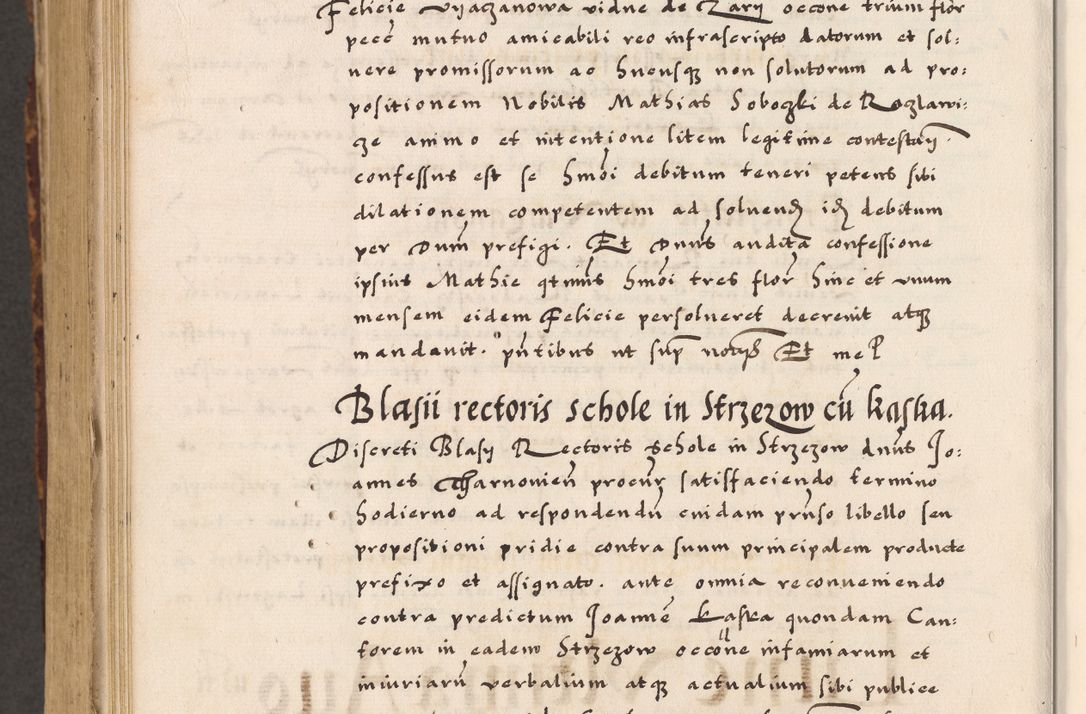 Felicie Vyaczanowa vidue de Zary occone trium flor
pecē mutuo amicabili reo infrascripto datorum et sol:
uere promissorum ac hucusq non solutorum ad pro:
positionem Nobilis Mathias Soboczki de Roczlawi:
cze animo et intentione litem legitime contestan
confessus est se hmōi debitum teneri petens sibi
dilationem competentem ad soluend id debitum
per Dnm prefigi. Et Dnus audita confessione
ipsius Mathie qtinus hmōi tres flor hinc et vnum
mensem eidem Felicie persolueret decreuit atq
mandauit. pntibus ut sup notarijs Et me P
Blasii rectoris schole in Strzezow cū kaska.
Discreti Blasy Rectoris schole in Strzezow dnus Jo:
annes Tharnowien procur satisfaciendo termino
hodierno ad respondendū cuidam prnso libello seu
propositioni pridie contra suum principalem producte
prefixo et assignato. ante omnia reconueniendo
contra predictum Joannē kaska quondam Can:
torem in eadem Strzezow occōne infamiarum et
iniuriarū verbalium atq actualium sibi publice